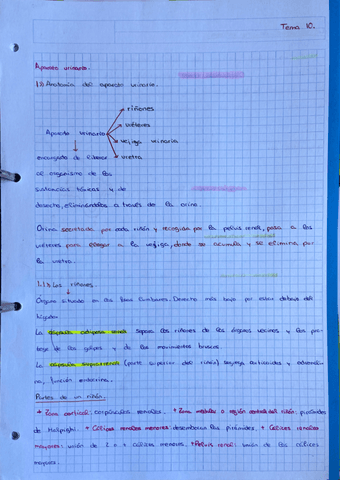 Tema 10.
Aparato urinario.
1.) Anatomía del aparato urinario.
riñones
uréteres
Aparato urinario
vejiga urinaria
uretra
encargado de liberar
al organismo de las
sustancias tóxicas y de
desecho, eliminándolas a través de la orina.
Orina secretada por cada riñón y recogida por la pelvis renal, pasa a los
uréteres para llegar a la vejiga, donde se acumula y se elimina por
la uretra.
1.1) Los riñones.
Órgano situado en las fosas lumbares. Derecho más bajo por estar debajo del
hígado.
La cápsula adiposa renal separa los riñones de los órganos vecinos y los pro-
tege de los golpes y de los movimientos bruscos.
La cápsula suprarrenal (parte superior del riñón) segrega corticoides y adrenali-
na, función endocrina.
Partes de un riñón.
+ Zona cortical: corpúsculos renales. + Zona medular o región central del riñón: pirámides
de Malpighi. + Cálices renales menores: desembocan las pirámides. + Cálices renales
mayores: unión de 2 o + cálices menores. + Pelvis renal: unión de los cálices
mayores.